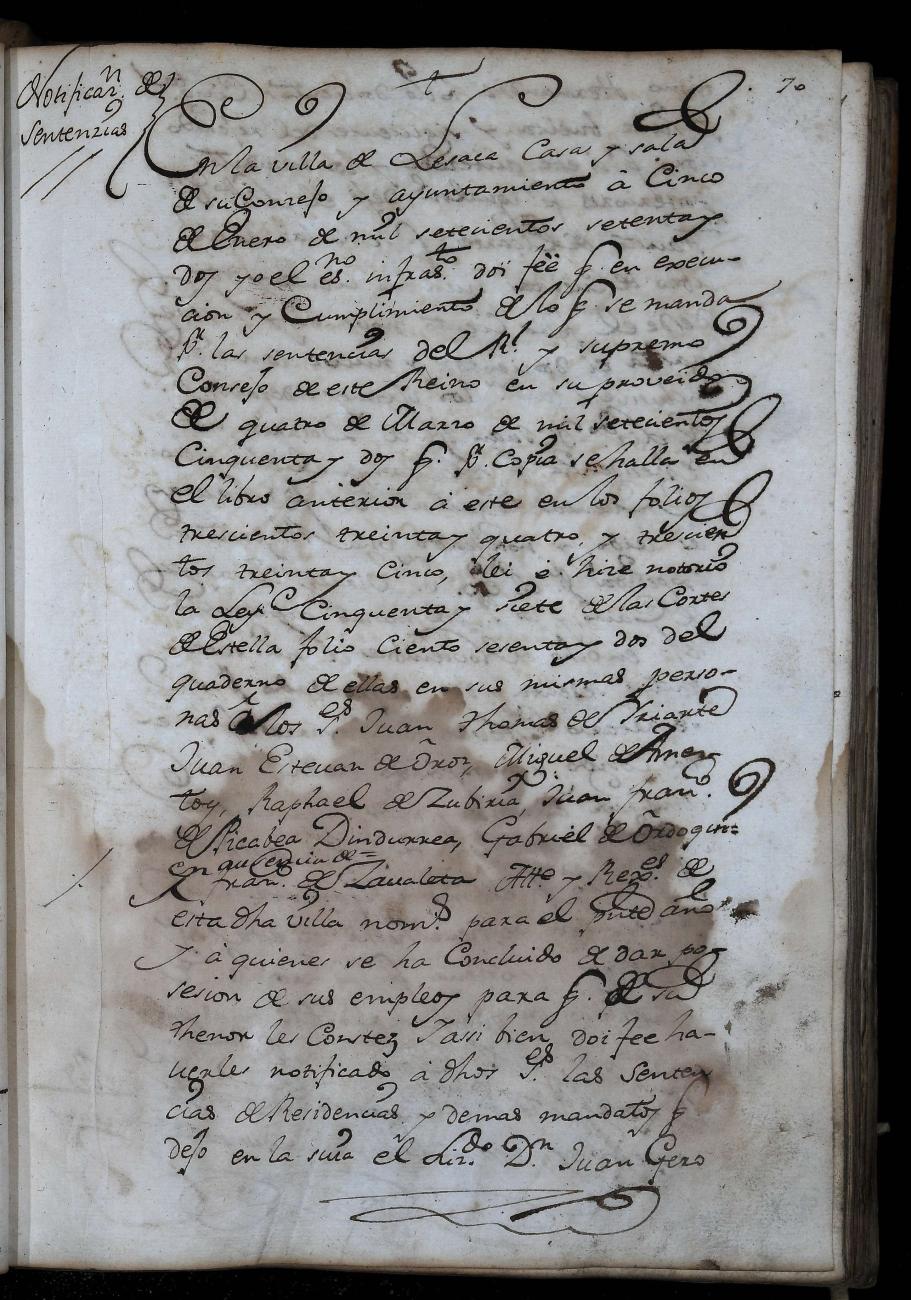 Notificaⁿ. de
sentenzias
70
En la villa de Lesaca Casa y sala
de su Consejo y ayuntamiento à Cinco
de Enero de mil setecientos setenta y
dos yo el es.ⁿᵒ infras.ᵗᵒ doi feè q. en execu-
cion y Cumplimiento de lo q. se manda
p.ʳ las sentencias del R.ˡ y supremo
Consejo de este Reino en su proveido
de quatro de Marzo de mil setecientos
Cinquenta y dos q. p.ʳ Copia se halla en
el libro anterior à este en los folios
trescientos treinta y quatro, y trescien
tos treinta y Cinco, lei è hize notorio
la Ley Cinquenta y siete de las Cortes
de Estella folio Ciento sesenta y dos del
quaderno de ellas en sus mismas perso-
nas à los S.ᵉˢ Juan Thomas de Yriarte
Juan Estevan de Oroz, Miguel de Amen
toy, Raphael de Zubiria, Juan fran.ᶜᵒ
de Picabea Dindurrea, Gabriel de Ordoqui=
en ausencia de=
fran.ᶜᵒ de Zavaleta Alt.ᵉ y Rex.ᵉˢ de
esta dha villa nom.ᵈᵒˢ para el pnte año
Y à quienes se ha Concluido de dar po-
sesion de sus empleos para q. de su
thenor les Conste; Y assi bien doi fee ha-
verles notificado à dhos S.ᵉˢ las Senten
cias de Residencias y demas mandatos q
dejo en la suia el Liz.ᵈᵒ D.ⁿ Juan Gero